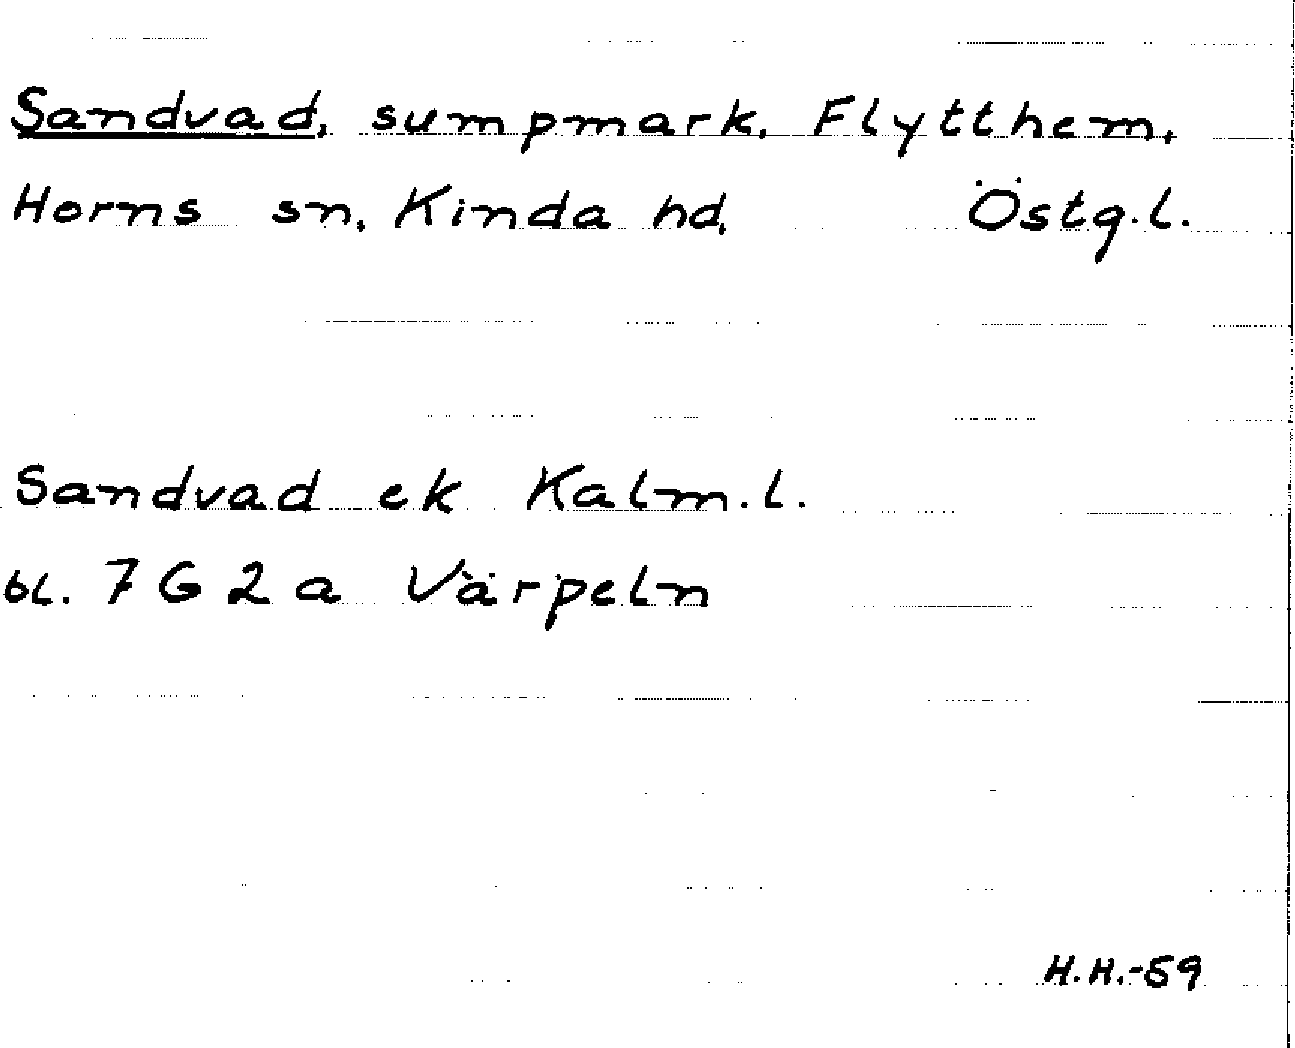 Sandvad, sumpmark, Flytthem,
Horns sn, Kinda hd, Östg.l.
Sandvad ek Kalm.l.
bl. 7 G 2 a Värpeln
H.H.-59